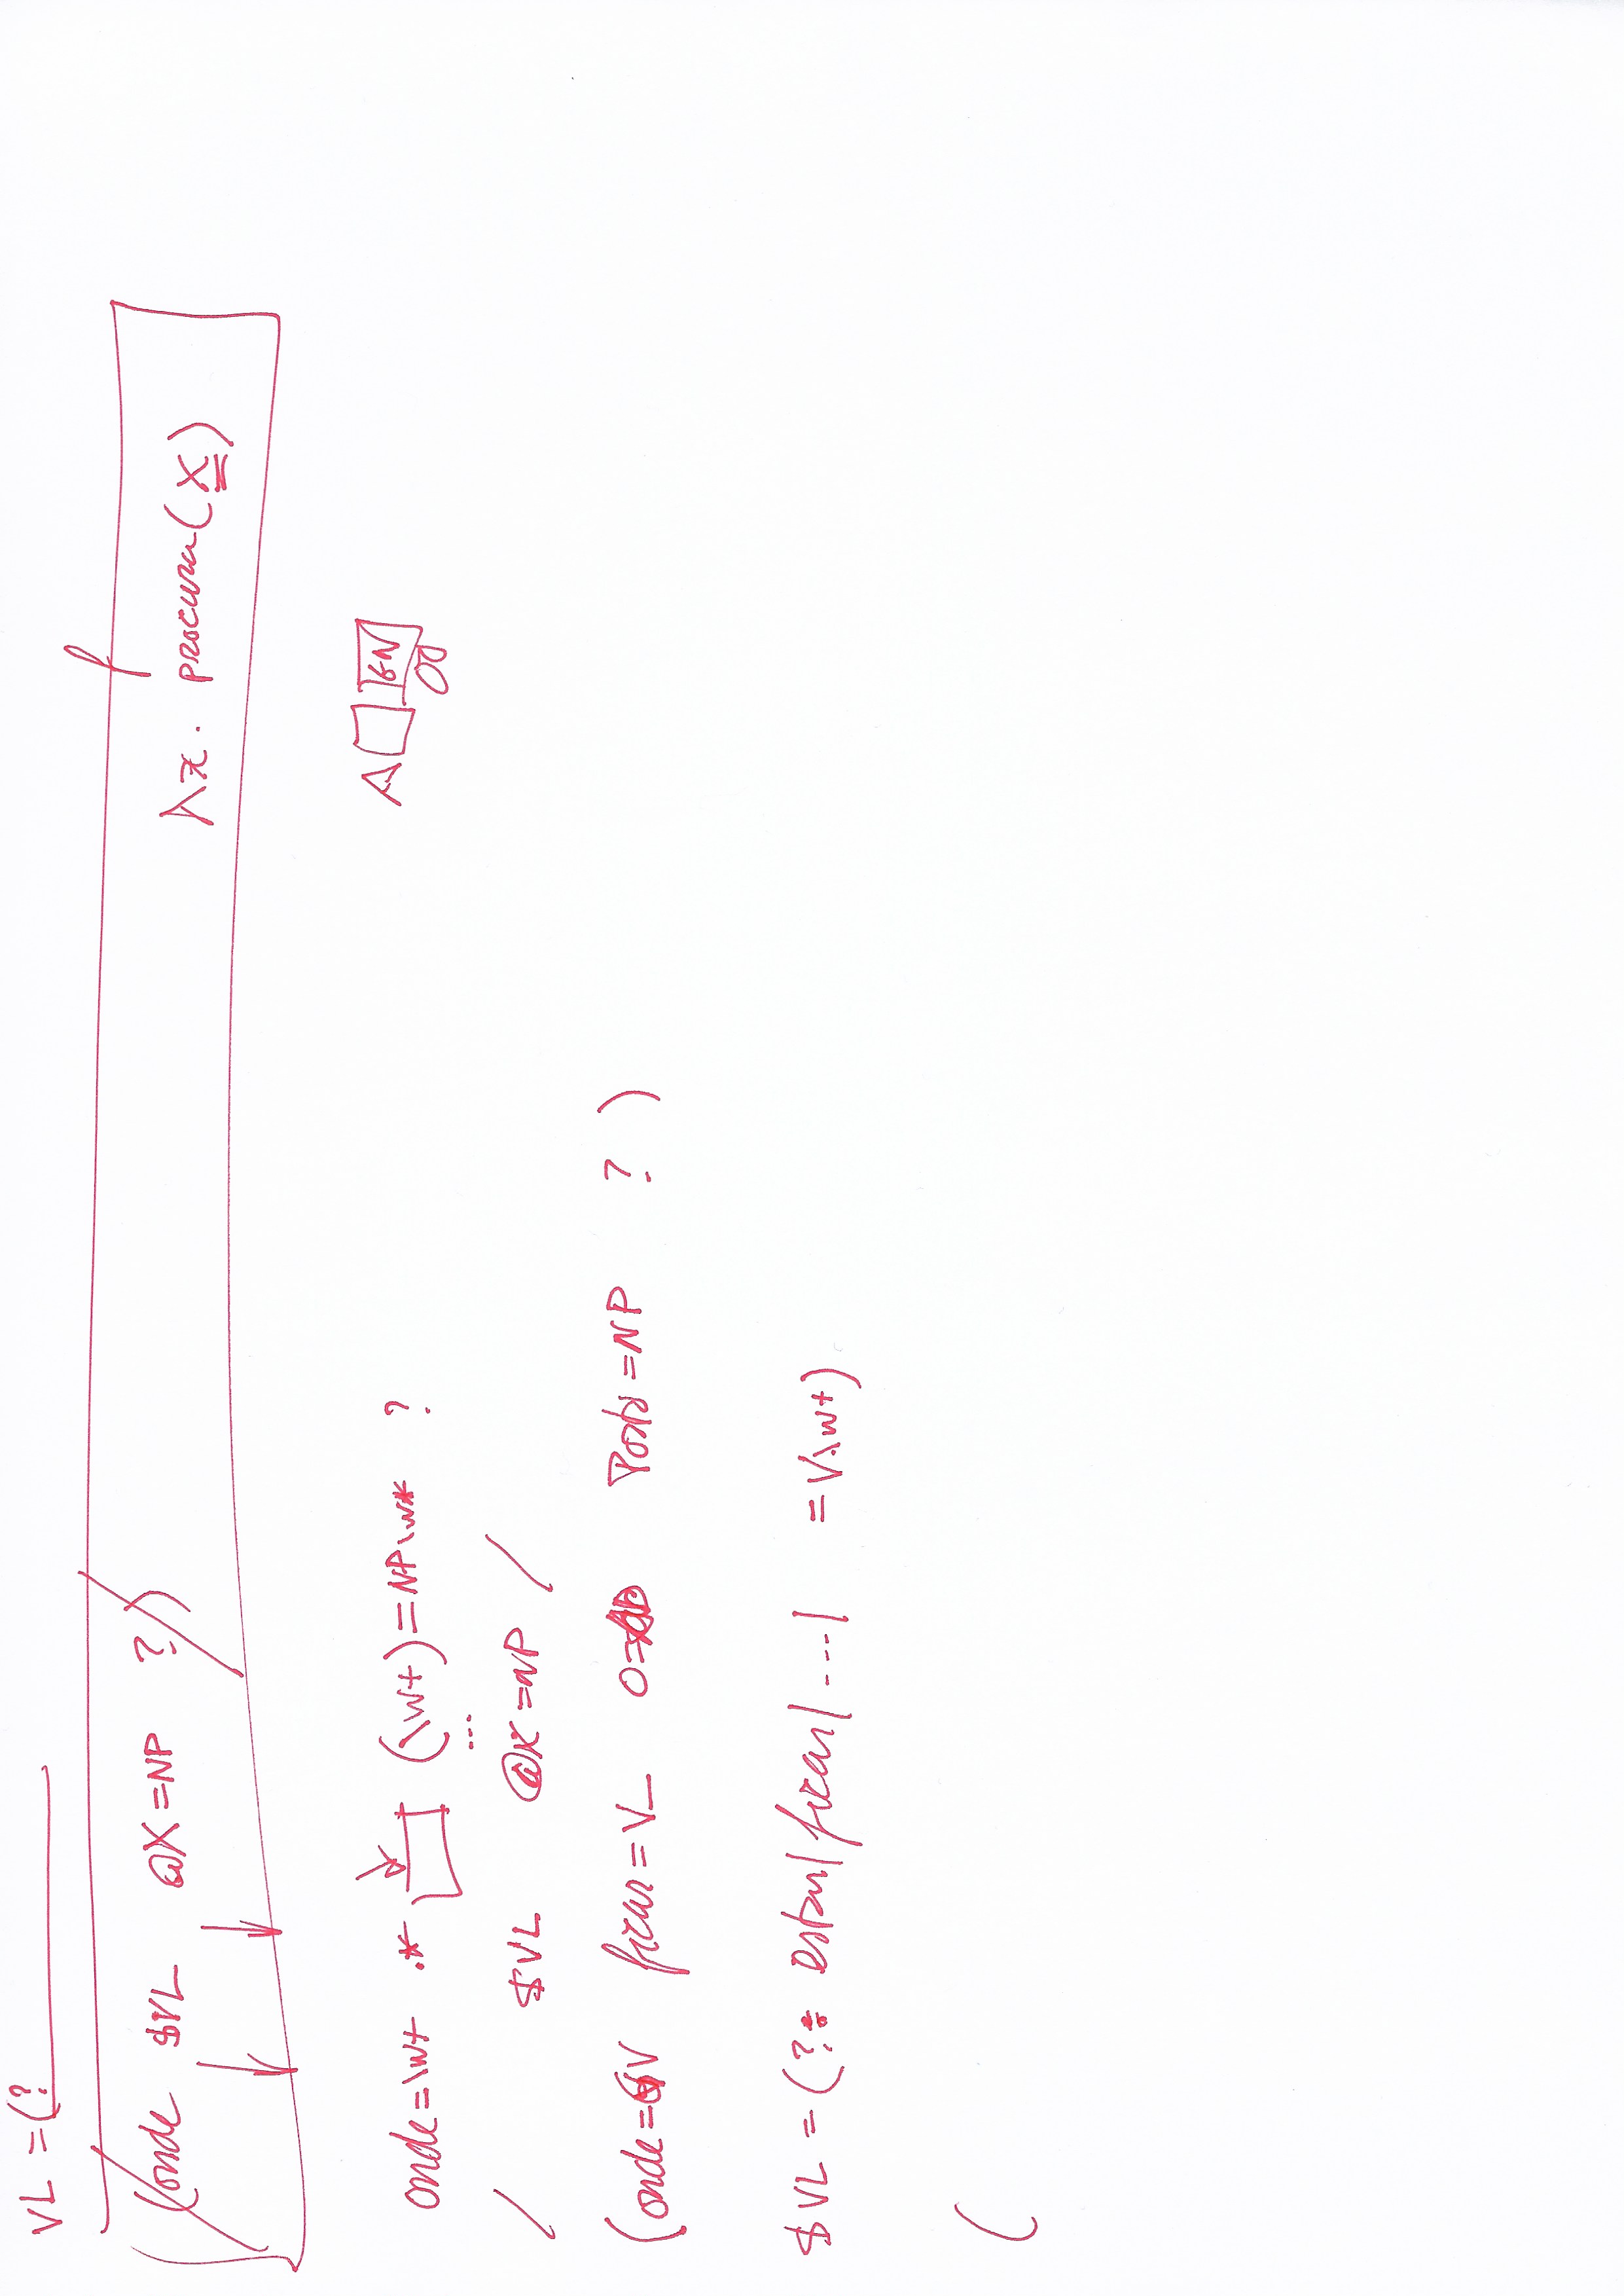 VL = (?
(onde $VL @X=NP ?) λx. procura(x)
onde=\w+ .* (\w+)=NP\w* ?
...
/ $VL @X=NP /
(onde= V ficar=V_ O= Porto=NP ? )
$VL = (?: estar|ficar|...| =V\w+)
(